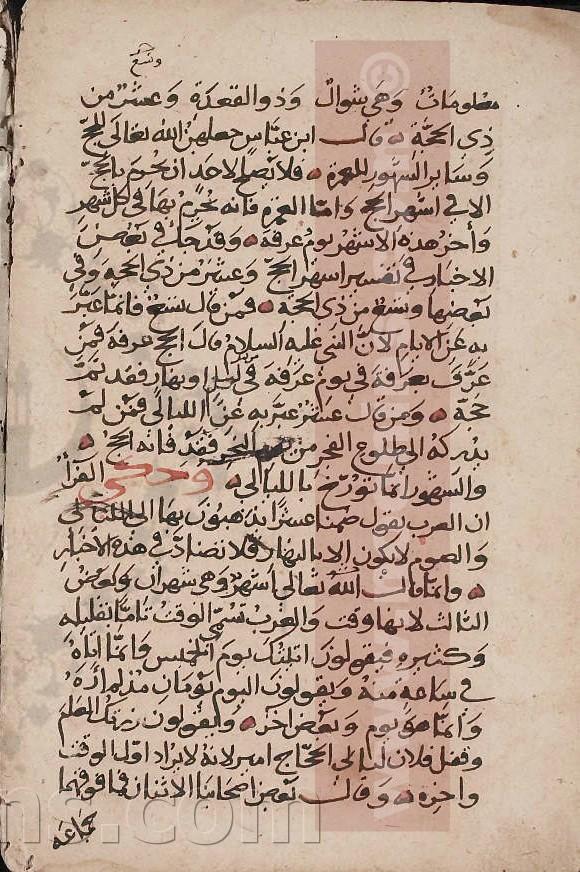 وتسع
معلومات وهي شوال وذو القعدة وعشر من
ذي الحجة قال ابن عباس جعلهن الله تعالى للحج
وساير الشهور للعمرة فلا تصلح لاحد ان يحرم بالحج
الا في اشهر الحج واما العمرة فانه يحرم بها في كل شهر
وأخر هذه الاشهر يوم عرفة وقد جا في بعض
الاخبار في تفسير اشهر الحج وعشر من ذي الحجة وفي
بعضها وتسع من ذي الحجة فمن قال تسع فانما عبر
به عن الايام لان النبي عليه السلام قال الحج عرفة فمن
عرف بعرفة في يوم عرفة في ليل او نهار فقد تم
حجه ومن قال عشر عبر به عن الليالي فمن لم
يدركه الى طلوع الفجر من يوم النحر فقد فاته الحج
والشهور انما تورخ بالليالي وحكى الفرا
ان العرب تقول صمنا عشرا يذهبون بها الى الليالي
والصوم لا يكون الا بالنهار فلا تضاد في هذه الاخبار
وانما قال الله تعالى اشهر وهي شهران وبعض
الثالث لانها وقت والعرب تسمي الوقت تاما بقليله
وكثيره فيقولون اتيتك يوم الخميس وانما اتاه
في ساعة منه ويقولون اليوم يومان مذ لم أره
وانما هو يوم وبعض اخر ويقولون زرتك العام
وقتل فلان ليالي الحجاج امير لانه لا يراد اول الوقت
واخره وقال بعض اصحابنا الاثنان فما فوقهما
جماعة